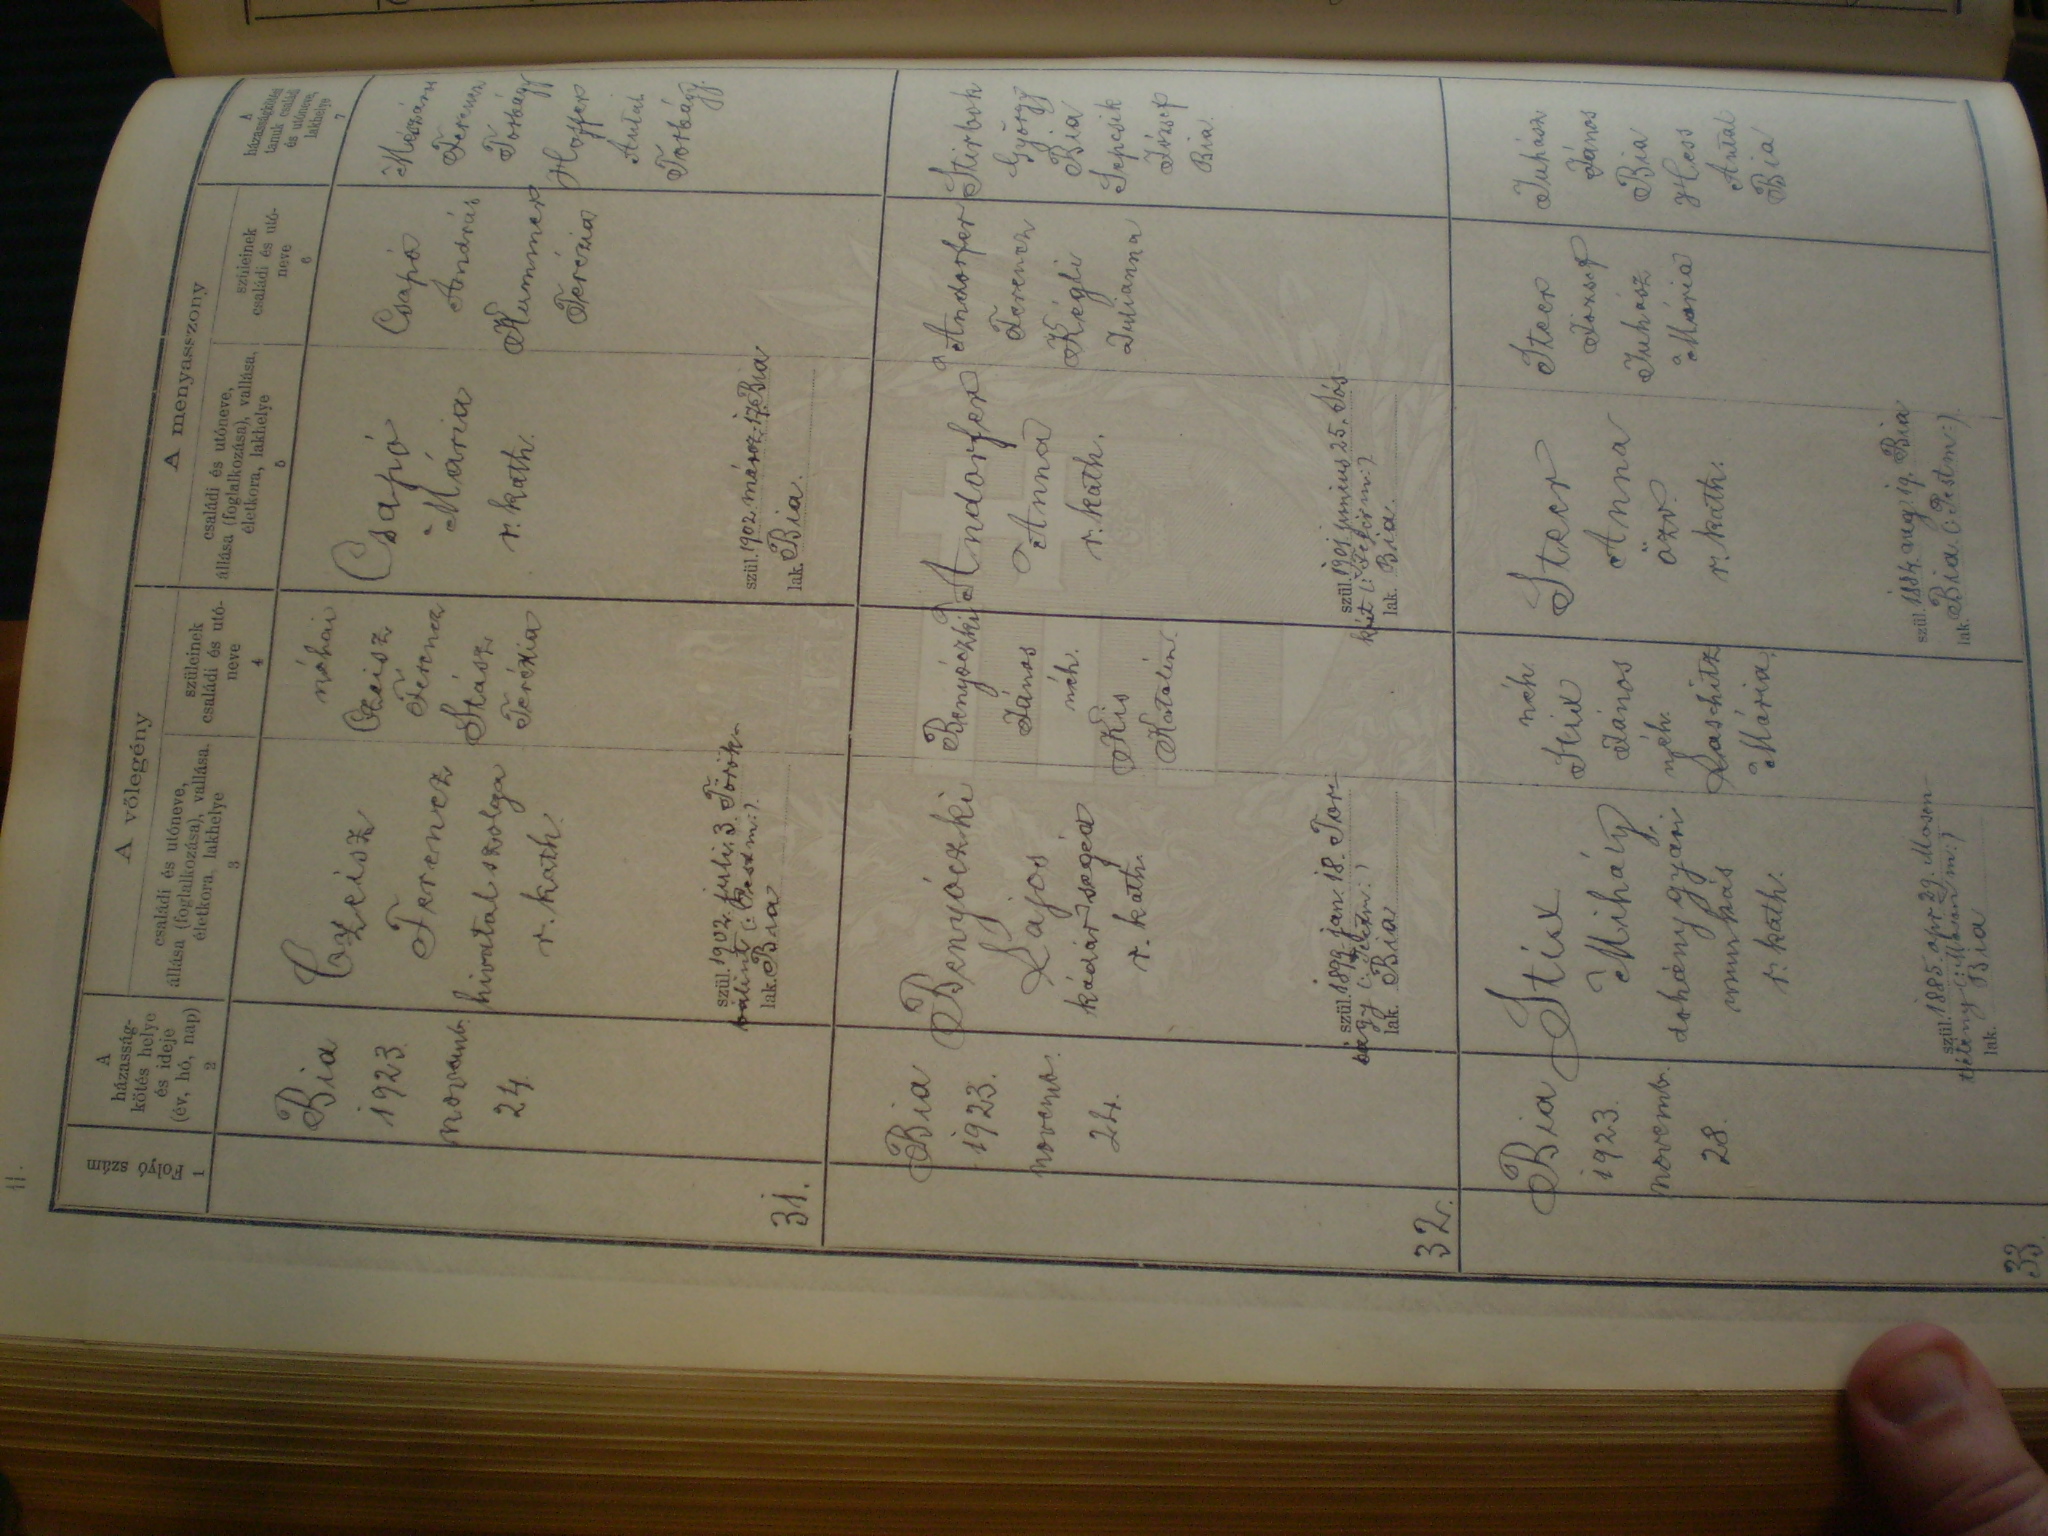 11.
Folyó szám
1
A házasság-
kötés helye
és ideje
(év, hó, nap)
2
A vőlegény
családi és utóneve,
állása (foglalkozása), vallása,
életkora, lakhelye
3
szüleinek
családi és utó-
neve
4
A menyasszony
családi és utóneve,
állása (foglalkozása), vallása,
életkora, lakhelye
5
szüleinek
családi és utó-
neve
6
A
házasságkötési
tanuk családi
és utóneve,
lakhelye
7
31.
Bia
1923.
novemb.
24.
Czeisz
Ferencz
hivatalszolga
r. kath.
szül. 1902. juli. 3. Török-
bálint (: Pestm:).
lak. Bia
néhai
Czeisz
Ferencz
Stász
Terézia
Csapó
Mária
r. kath.
szül. 1902. márcz. 17. Bia
lak. Bia.
Csapó
András
Kummer
Terézia
Mészáros
Ferencz
Torbágy
Hoffer
Antal
Torbágy.
32.
Bia
1923.
novemb.
24.
Benyóczki
Lajos
kádársegéd
r. kath.
szül. 1899. jan. 18. Tor-
bágy (: Pestm:)
lak. Bia
Benyóczki
János
néh.
Kis
Katalin
Andorfer
Anna
r. kath.
szül. 1901. junius 25. Sós-
kút (: Fejérm:).
lak. Bia.
Andorfer
Ferencz
Kégli
Julianna
Stirbok
György
Bia
Sepcsik
József
Bia.
33.
Bia
1923.
novemb.
28.
Stix
Mihály
dohánygyári
munkás
r. kath.
szül. 1885. ápr. 29. Moson-
tétény (: Mosonm:)
lak. Bia
néh
Stix
János
néh.
Laschitz
Mária.
Steer
Anna
özv.
r. kath.
szül. 1884. aug. 19. Bia
lak. Bia (: Pestm:).
Steer
József
Juhász
Mária
Juhász
János
Bia
Hess
Antal
Bia